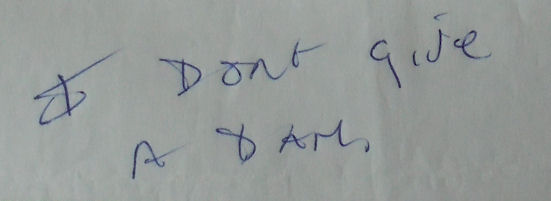 I Dont give
A DAMN